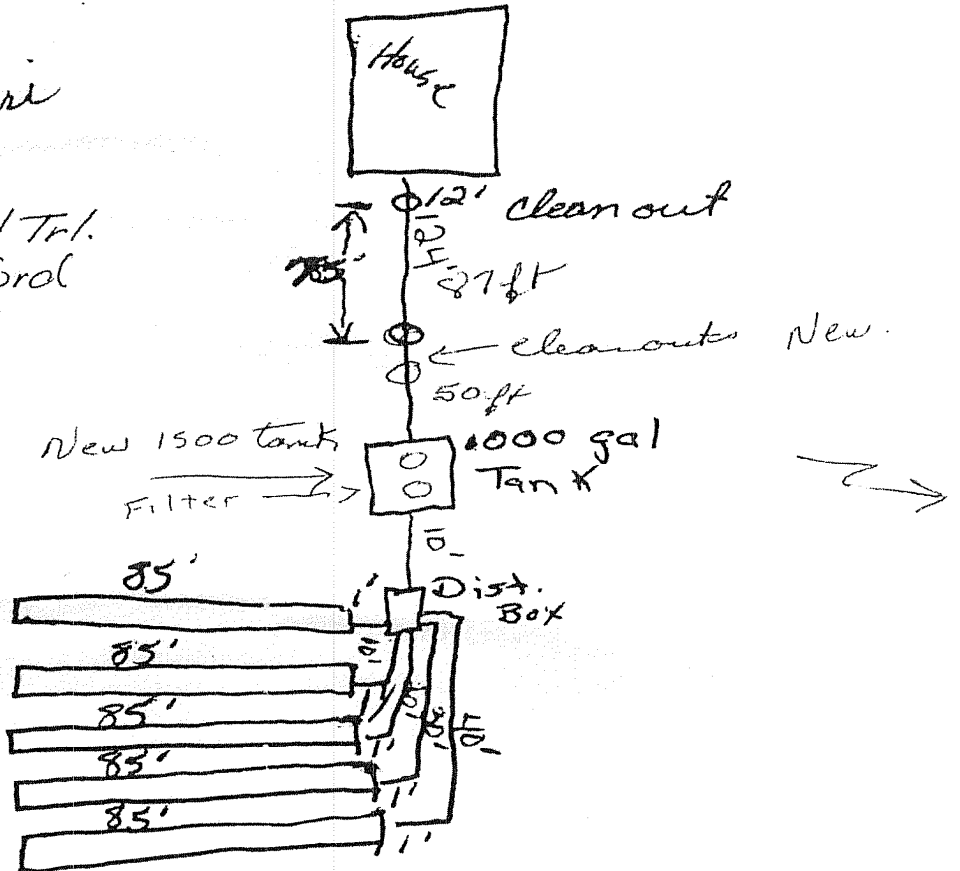 House
Trl.
12' Clean out
87 ft
Cleanouts New.
50 ft
New 1500 tank
000 gal
Tank
Filter
10'
Dist.
Box
85'
1'
85'
10'
85'
1'
85'
1'
40'
85'
1'